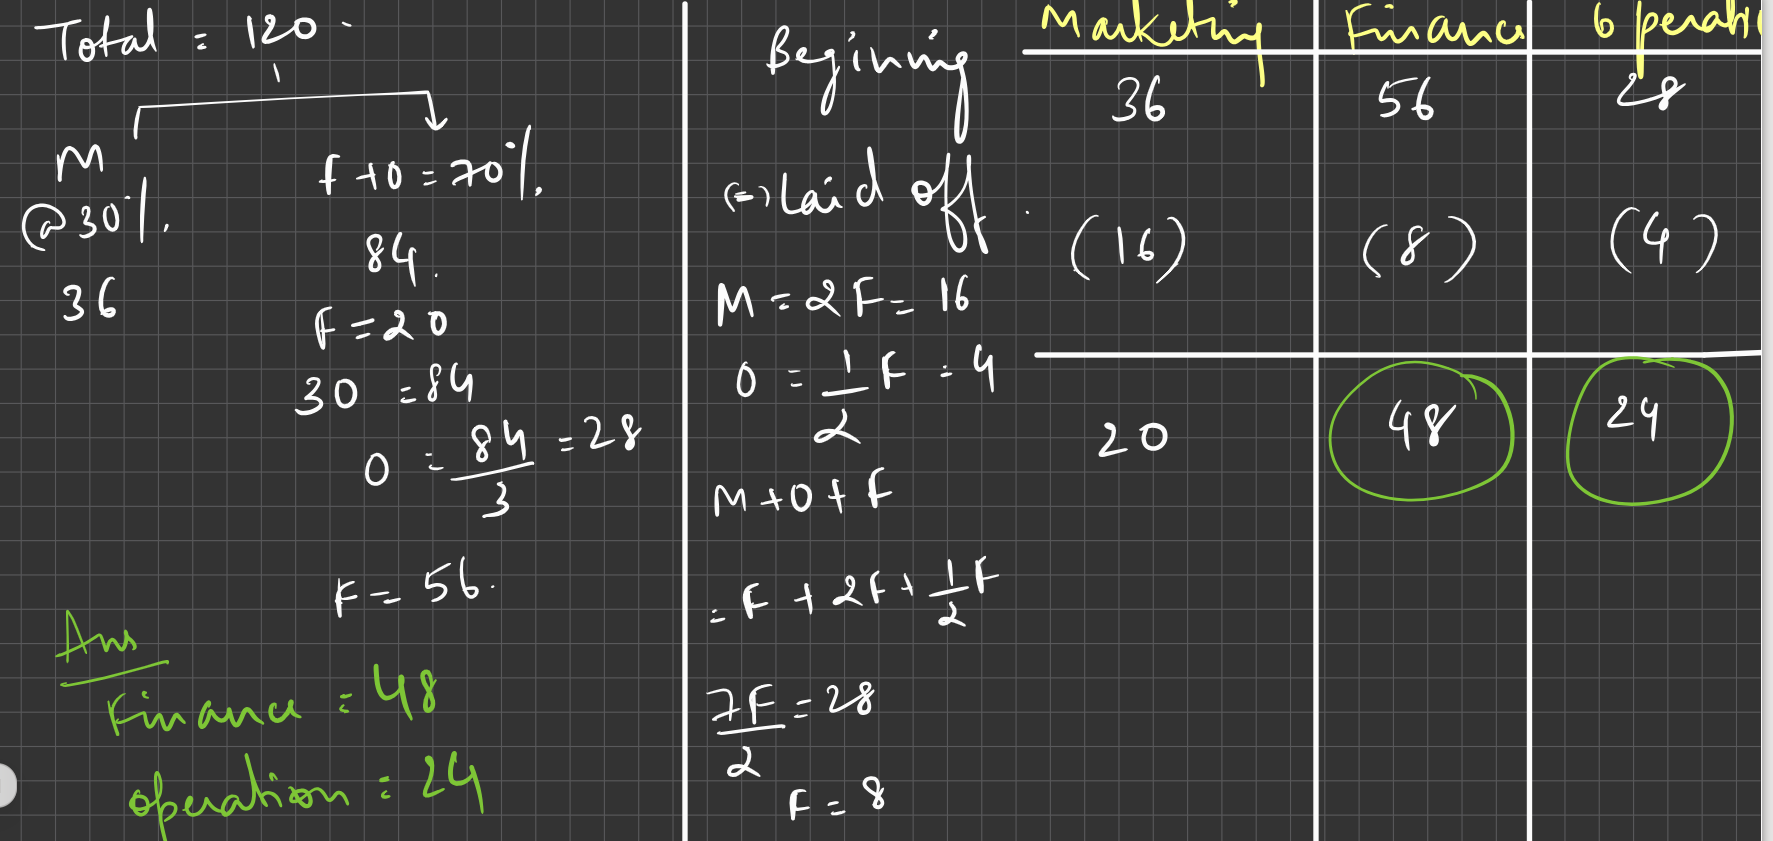 Total = 120
M
@30%.
36
f+0=70%.
84.
F=20
30 =84
0 = 84/3 =28
F= 56.
Ans
Finance = 48
operation = 24
Begining
(=) Laid off
M = 2F= 16
0 = 1/2 F = 4
M+0+F
= F + 2F+ 1/2 F
7F/2 = 28
F= 8
Marketing Finance operati
36 56 28
(16) (8) (4)
20 48 24